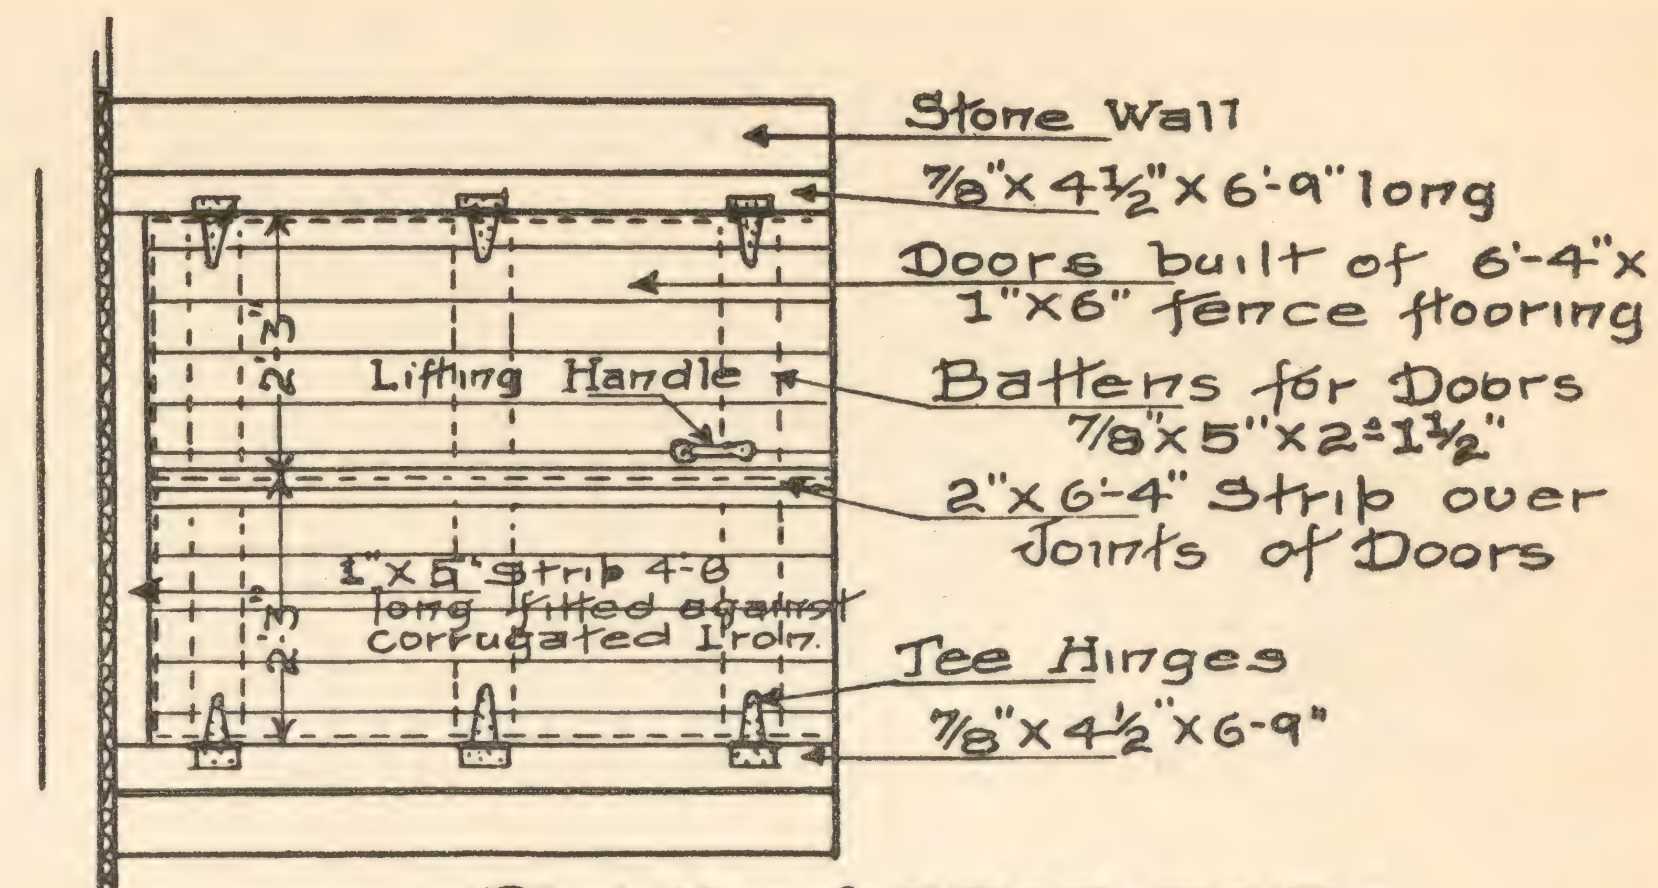 Stone Wall
7/8" X 4 1/2" X 6'-9" long
Doors built of 6'-4" x
1" X 6" fence flooring
Lifting Handle
Battens for Doors
7/8" X 5" X 2'-1 1/2"
2" X 6'-4" Strip over
Joints of Doors
2'-3"
2'-3"
1" X 5" Strip 4-6
long fitted against
corrugated Iron.
Tee Hinges
7/8" X 4 1/2" X 6-9"